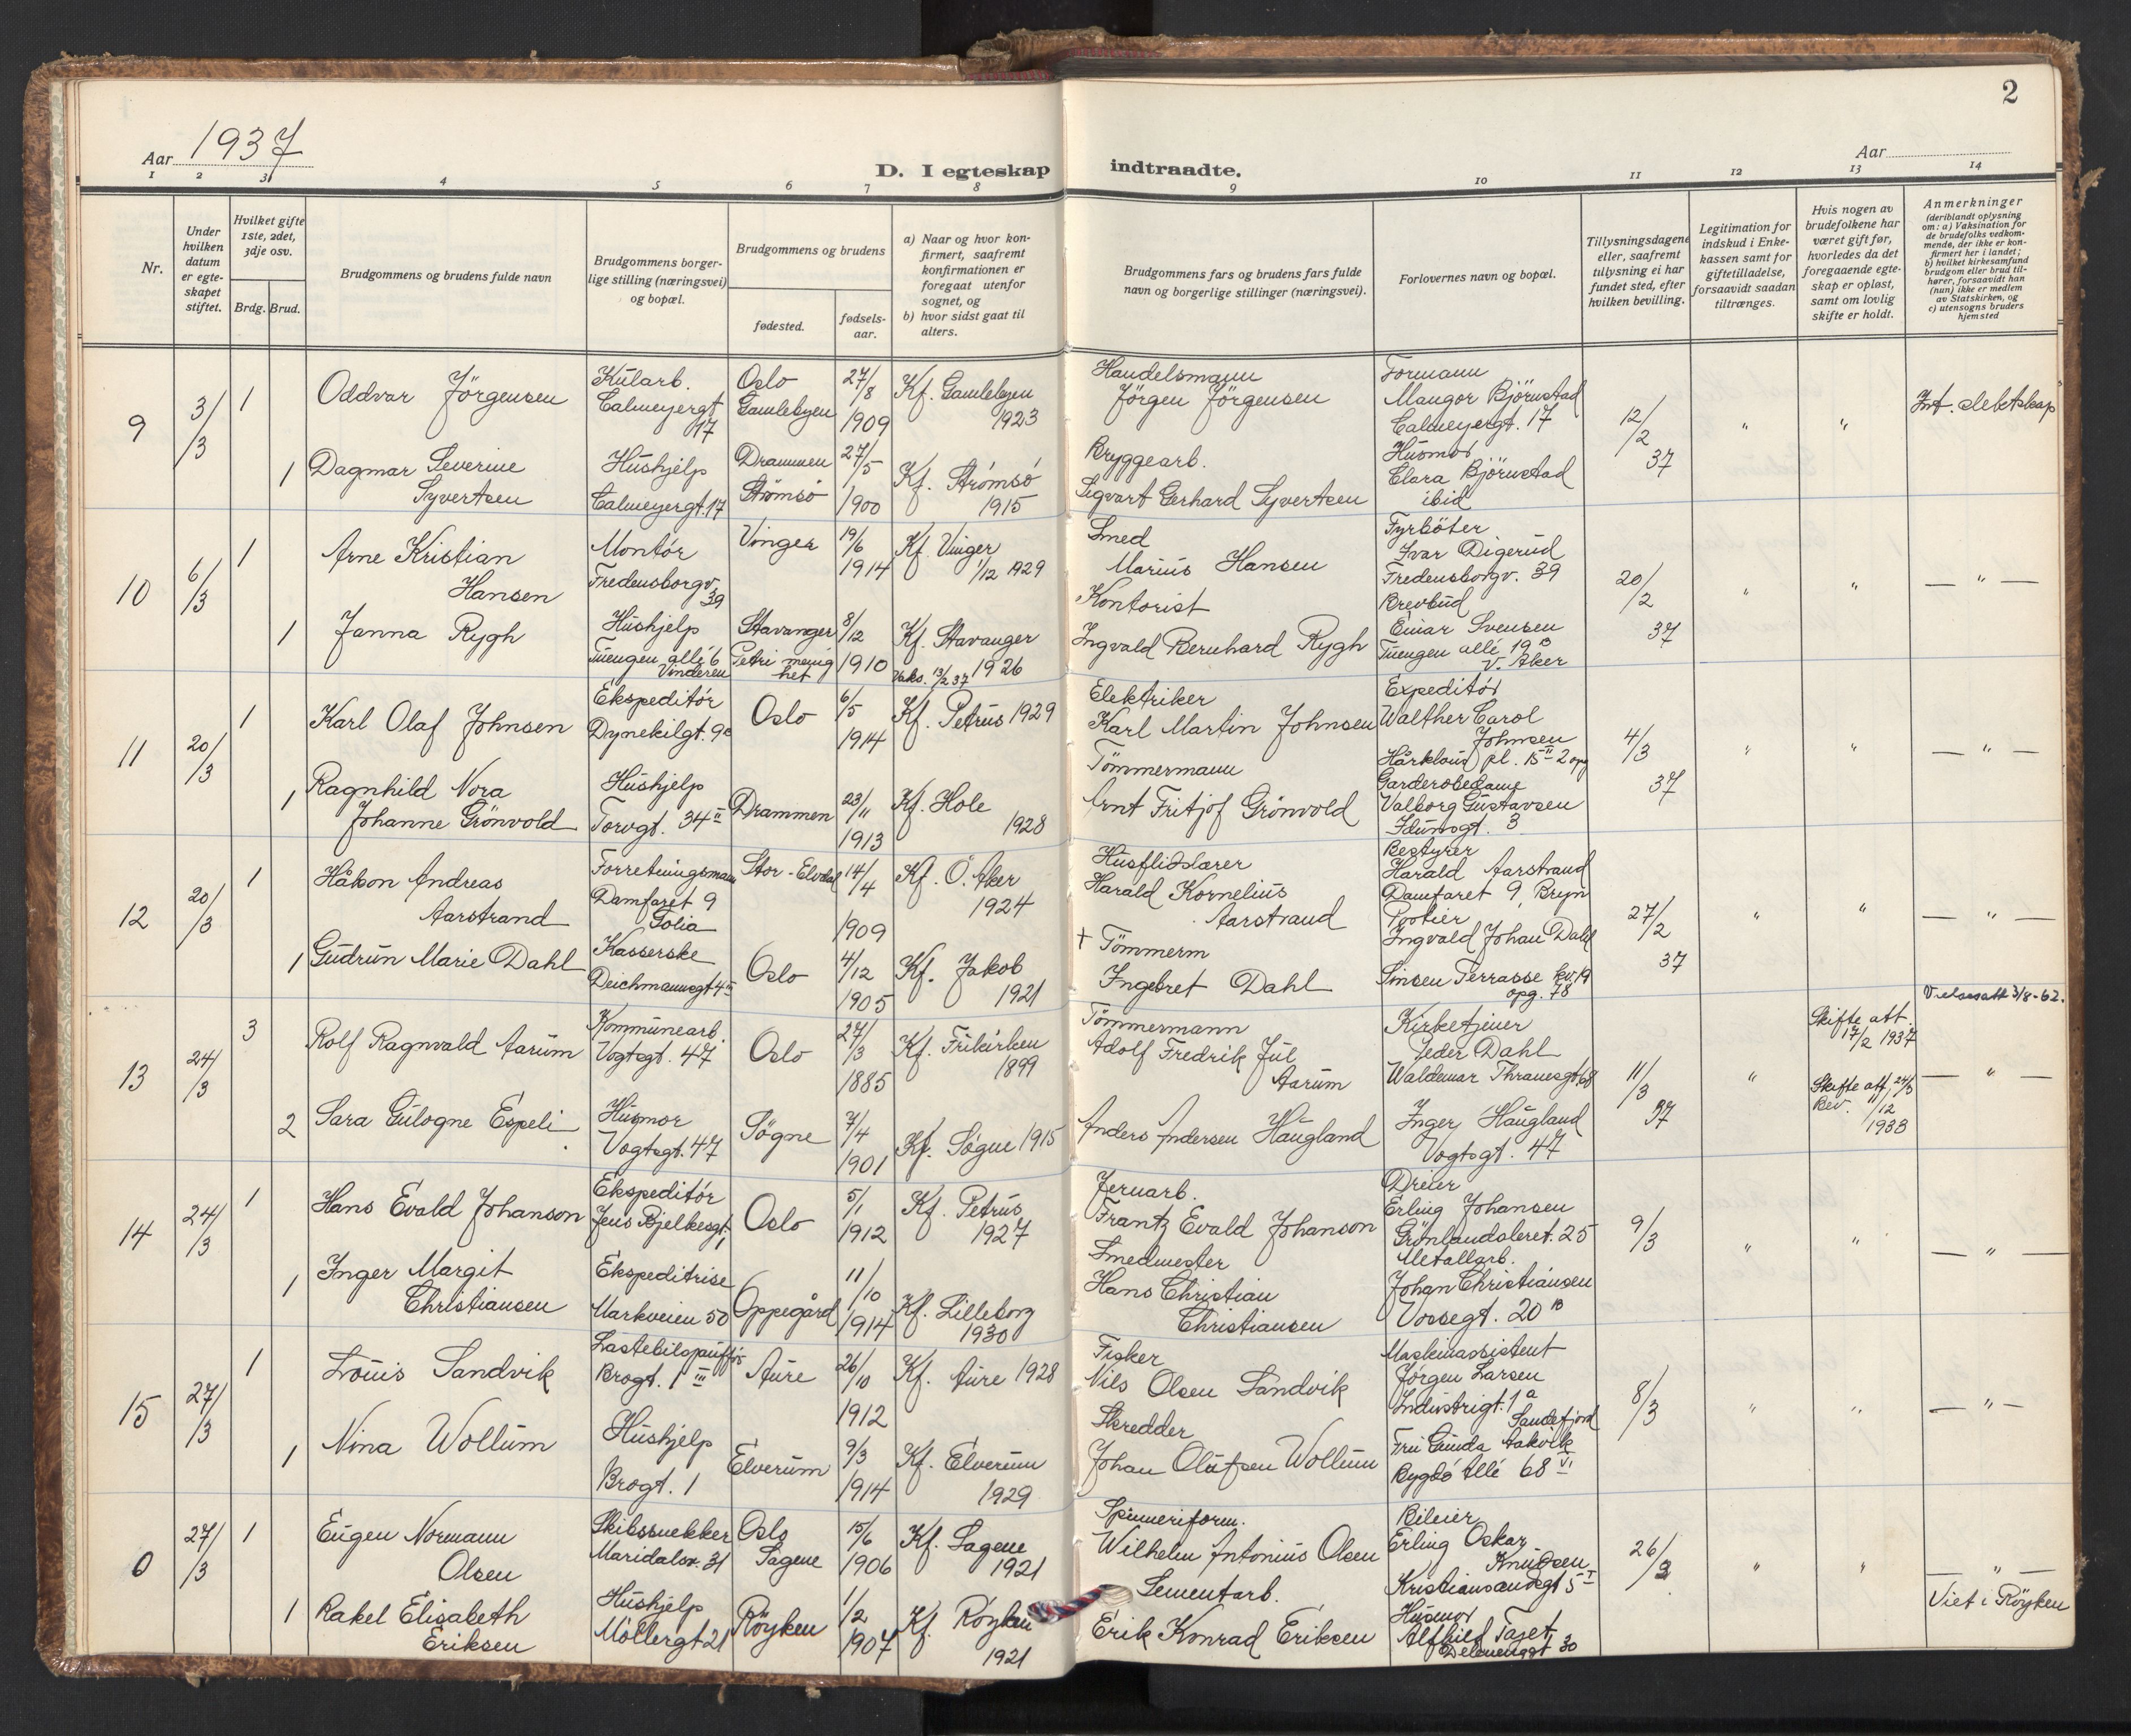 2
Aar 1937
D. I egteskap indtraadte.
Aar
1 2 3 4 5 6 7 8 9 10 11 12 13 14
Nr.
Under hvilken datum er egteskapet stiftet.
Hvilket gifte 1ste, 2det, 3dje osv.
Brdg. Brud.
Brudgommens og brudens fulde navn
Brudgommens borgerlige stilling (næringsvei) og bopæl.
Brudgommens og brudens
fødested.
fødselsaar.
a) Naar og hvor konfirmert, saafremt konfirmationen er foregaat utenfor sognet, og
b) hvor sidst gaat til alters.
Brudgommens fars og brudens fars fulde navn og borgerlige stillinger (næringsvei).
Forlovernes navn og bopæl.
Tillysningsdagene eller, saafremt tillysning ei har fundet sted, efter hvilken bevilling.
Legitimation for indskud i Enkekassen samt for giftetilladelse, forsaavidt saadan tiltrænges.
Hvis nogen av brudefolkene har været gift før, hvorledes da det foregaaende egteskap er opløst, samt om lovlig skifte er holdt.
Anmerkninger
(deriblandt oplysning om: a) Vaksination for de brudefolks vedkommende, der ikke er konfirmert her i landet; b) hvilket kirkesamfund brudgom eller brud tilhører, forsaavidt han (hun) ikke er medlem av Statskirken, og c) utensogns bruders hjemsted
9
3/3
1
Oddvar Jörgensen
Kularb.
Calmeyergt. 17
Oslo
Gamlebyen
27/8 1909
Kf. Gamlebyen 1923
Handelsmann
Jörgen Jörgensen
Formann
Maugor Björnstad
Calmeyergt. 17
12/2 37
" "
Int. slektskap
1
Dagmar Severine
Syvertsen
Hushjelp
Calmeyergt. 17
Drammen
Strömsö
27/5 1900
Kf. Strömsö 1915
Bryggearb.
Sigvart Gerhard Syvertsen
Husmor
Clara Björnstad
ibid
10
6/3
1
Arne Kristian
Hansen
Montör
Fredensborgv. 39
Vinger
19/6 1914
Kf. Vinger 1/12 1929
Smed
Marius Hansen
Fyrböter
Ivar Digerud
Fredensborgv. 39
20/2 37
" "
— " —
1
Janna Rygh
Hushjelp
Tuengen allé 6
Vinderen
Stavanger
Petri menighet
8/12 1910
Kf. Stavanger 1926
Vaks. 13/2 37
Kontorist
Ingvald Bernhard Rygh
Brevbud
Einar Svensen
Tuengen allé 19 B
V. Aker
11
20/3
1
Karl Olaf Johnsen
Ekspeditör
Dynekilgt. 9c
Oslo
6/5 1914
Kf. Petrus 1929
Elektriker
Karl Martin Johnsen
Expeditör
Walther Carol
Johnsen
Hårklous pl. 15 II 2 opg
4/3 37
" "
— " —
1
Ragnhild Nora
Johanne Grönvold
Hushjelp
Torvgt. 34 II
Drammen
23/11 1913
Kf. Hole 1928
Tömmermann
Arnt Fritjof Grönvold
Garderobedame
Valborg Gustavsen
Idunsgt. 3
12
20/3
1
Håkon Andreas
Aarstrand
Forretningsmann
Damfaret 9
Stor-Elvdal
14/4 1909
Kf. Ö. Aker 1924
Husflidslærer
Harald Kornelius
Aarstrand
Bestyrer
Harald Aarstrand
Damfaret 9, Bryn
27/2 37
" "
— " —
1
Gudrun Marie Dahl
Kasserske
Deichmannsgt 4 III
Oslo
4/12 1905
Kf. Jakob 1921
† Tömmerm
Ingebret Dahl
Portier
Ingvald Johan Dahl
Sinsen Terrasse kv. 19
opg. 78
Vielsesatt 3/8-62.
13
24/3
3
Rolf Ragnvald Aarum
Kommunearb.
Vogtsgt. 47
Oslo
27/3 1885
Kf. Frikirken 1899
Tömmermann
Adolf Fredrik Jul
Aarum
Kirketjener
Peder Dahl
Waldemar Thranesgt. 68
11/3 37
"
Skifte att.
17/2 1937
— " —
2
Sara Gulogne Espeli
Husmor
Vogtsgt. 47
Sögne
7/4 1901
Kf. Sögne 1915
Anders Andersen Haugland
Inger Haugland
Vogtsgt. 47
Skifte att. 24/3
Bev. 11/12 1933
14
24/3
1
Hans Evald Johanson
Ekspeditör
Jens Bjelkesgt. 1
Oslo
5/1 1912
Kf. Petrus 1927
Jernarb.
Frantz Evald Johanson
Dreier
Erling Johansen
Grönlandsleret. 25
9/3
" "
— " —
1
Inger Margit
Christiansen
Ekspeditrise
Markveien 50
Oppegård
11/10 1914
Kf. Lilleborg 1930
Smedmester
Hans Christian
Christiansen
Metallarb.
Johan Christiansen
Vossegt. 20 B
15
27/3
1
Louis Sandvik
Brogt. 1 III
Aure
26/10 1912
Kf. Aure 1928
Fisker
Nils Olsen Sandvik
Maskinassistent
Jörgen Larsen
Industrigt. 1 a
Sandefjord
8/3
" "
— " —
1
Nina Wollum
Hushjelp
Brogt. 1
Elverum
9/3 1914
Kf. Elverum 1929
Skredder
Johan Olufsen Wollum
Fru Gunda Aakvik
Bygdö Allé 68 VI
0
27/3
1
Eugen Normann
Olsen
Skibssnekker
Maridalsv. 31
Oslo
Sagene
15/6 1906
Kf. Sagene 1921
Spinneriform.
Wilhelm Antonius Olsen
Bileier
Erling Oskar
Knudsen
Kristiansandsgt 5 I
26/2
" "
— " —
Viet i Röyken
1
Rakel Elisabeth
Eriksen
Hushjelp
Möllergt 21
Röyken
1/2 1907
Kf. Röyken 1921
Sementarb.
Erik Konrad Eriksen
Husmor
Alfhild Taset
30